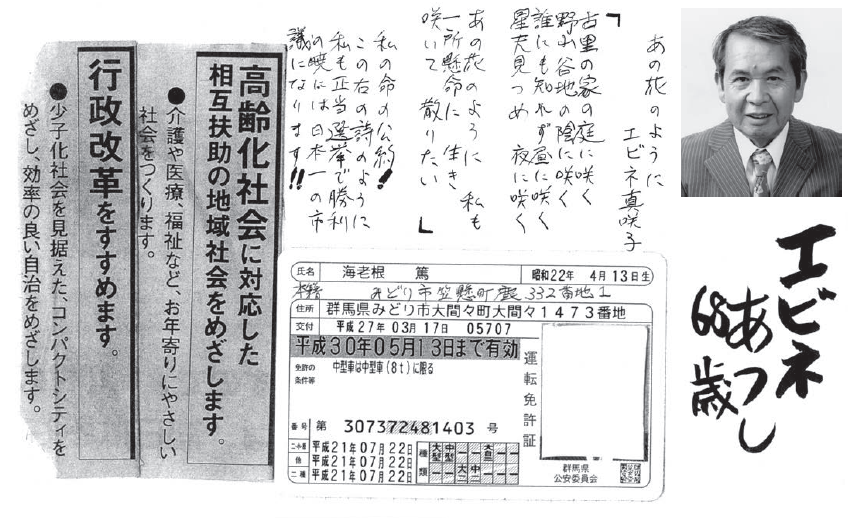 エビネ
あつし
68歳
あの花のように
エビネ真咲子
「古里の家の庭に咲く
野山谷地の陰に咲く
誰にも知れず昼に咲く
星空見つめ夜に咲く
あの花のように私も
一所懸命に生き
咲いて散りたい」
私の命の公約!
この右の詩のように
私も正当選挙で勝利
の暁には日本一の市
議になります!!
高齢化社会に対応した
相互扶助の地域社会をめざします。
●介護や医療、福祉など、お年寄りにやさしい
社会をつくります。
行政改革をすすめます。
●少子化社会を見据えた、コンパクトシティを
めざし、効率の良い自治をめざします。
氏名 海老根 篤 昭和22年 4月13日生
本籍 みどり市笠懸町鹿332番地1
住所 群馬県みどり市大間々町大間々1473番地
交付 平成27年03月17日 05707
平成30年05月13日まで有効
免許の
条件等
中型車は中型車(8t)に限る
番号 第 307372481403 号
二・小・原 平成21年07月22日
他 平成21年07月22日
二種 平成21年07月22日
種類
大型 中型 － － 大自 －
－ － 大二 中二 － －
運転免許証
群馬県
公安委員会